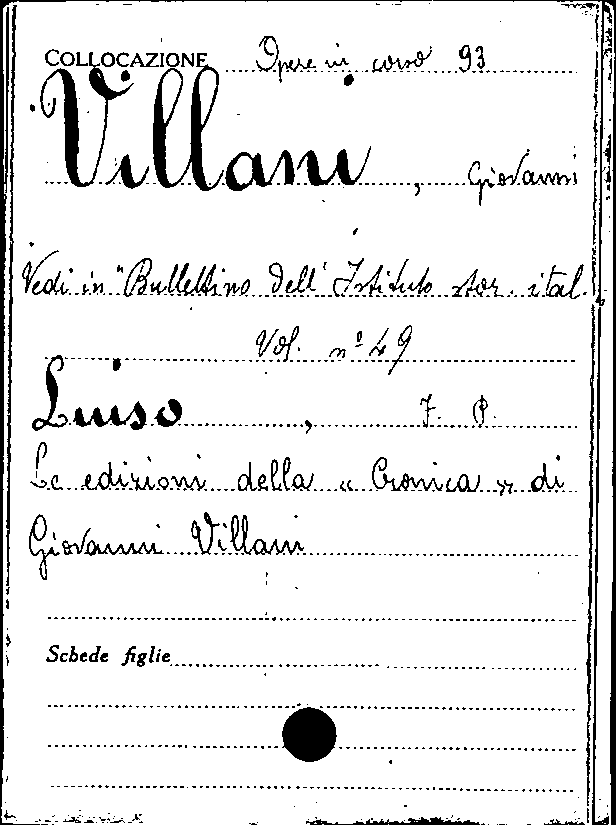 COLLOCAZIONE Opere in corso 93
Villani, Giovanni
Vedi in "Bullettino dell' Istituto stor. ital.
Vol. nº 49
Luiso, F. P.
Le edizioni della « Cronica » di
Giovanni Villani
Schede figlie